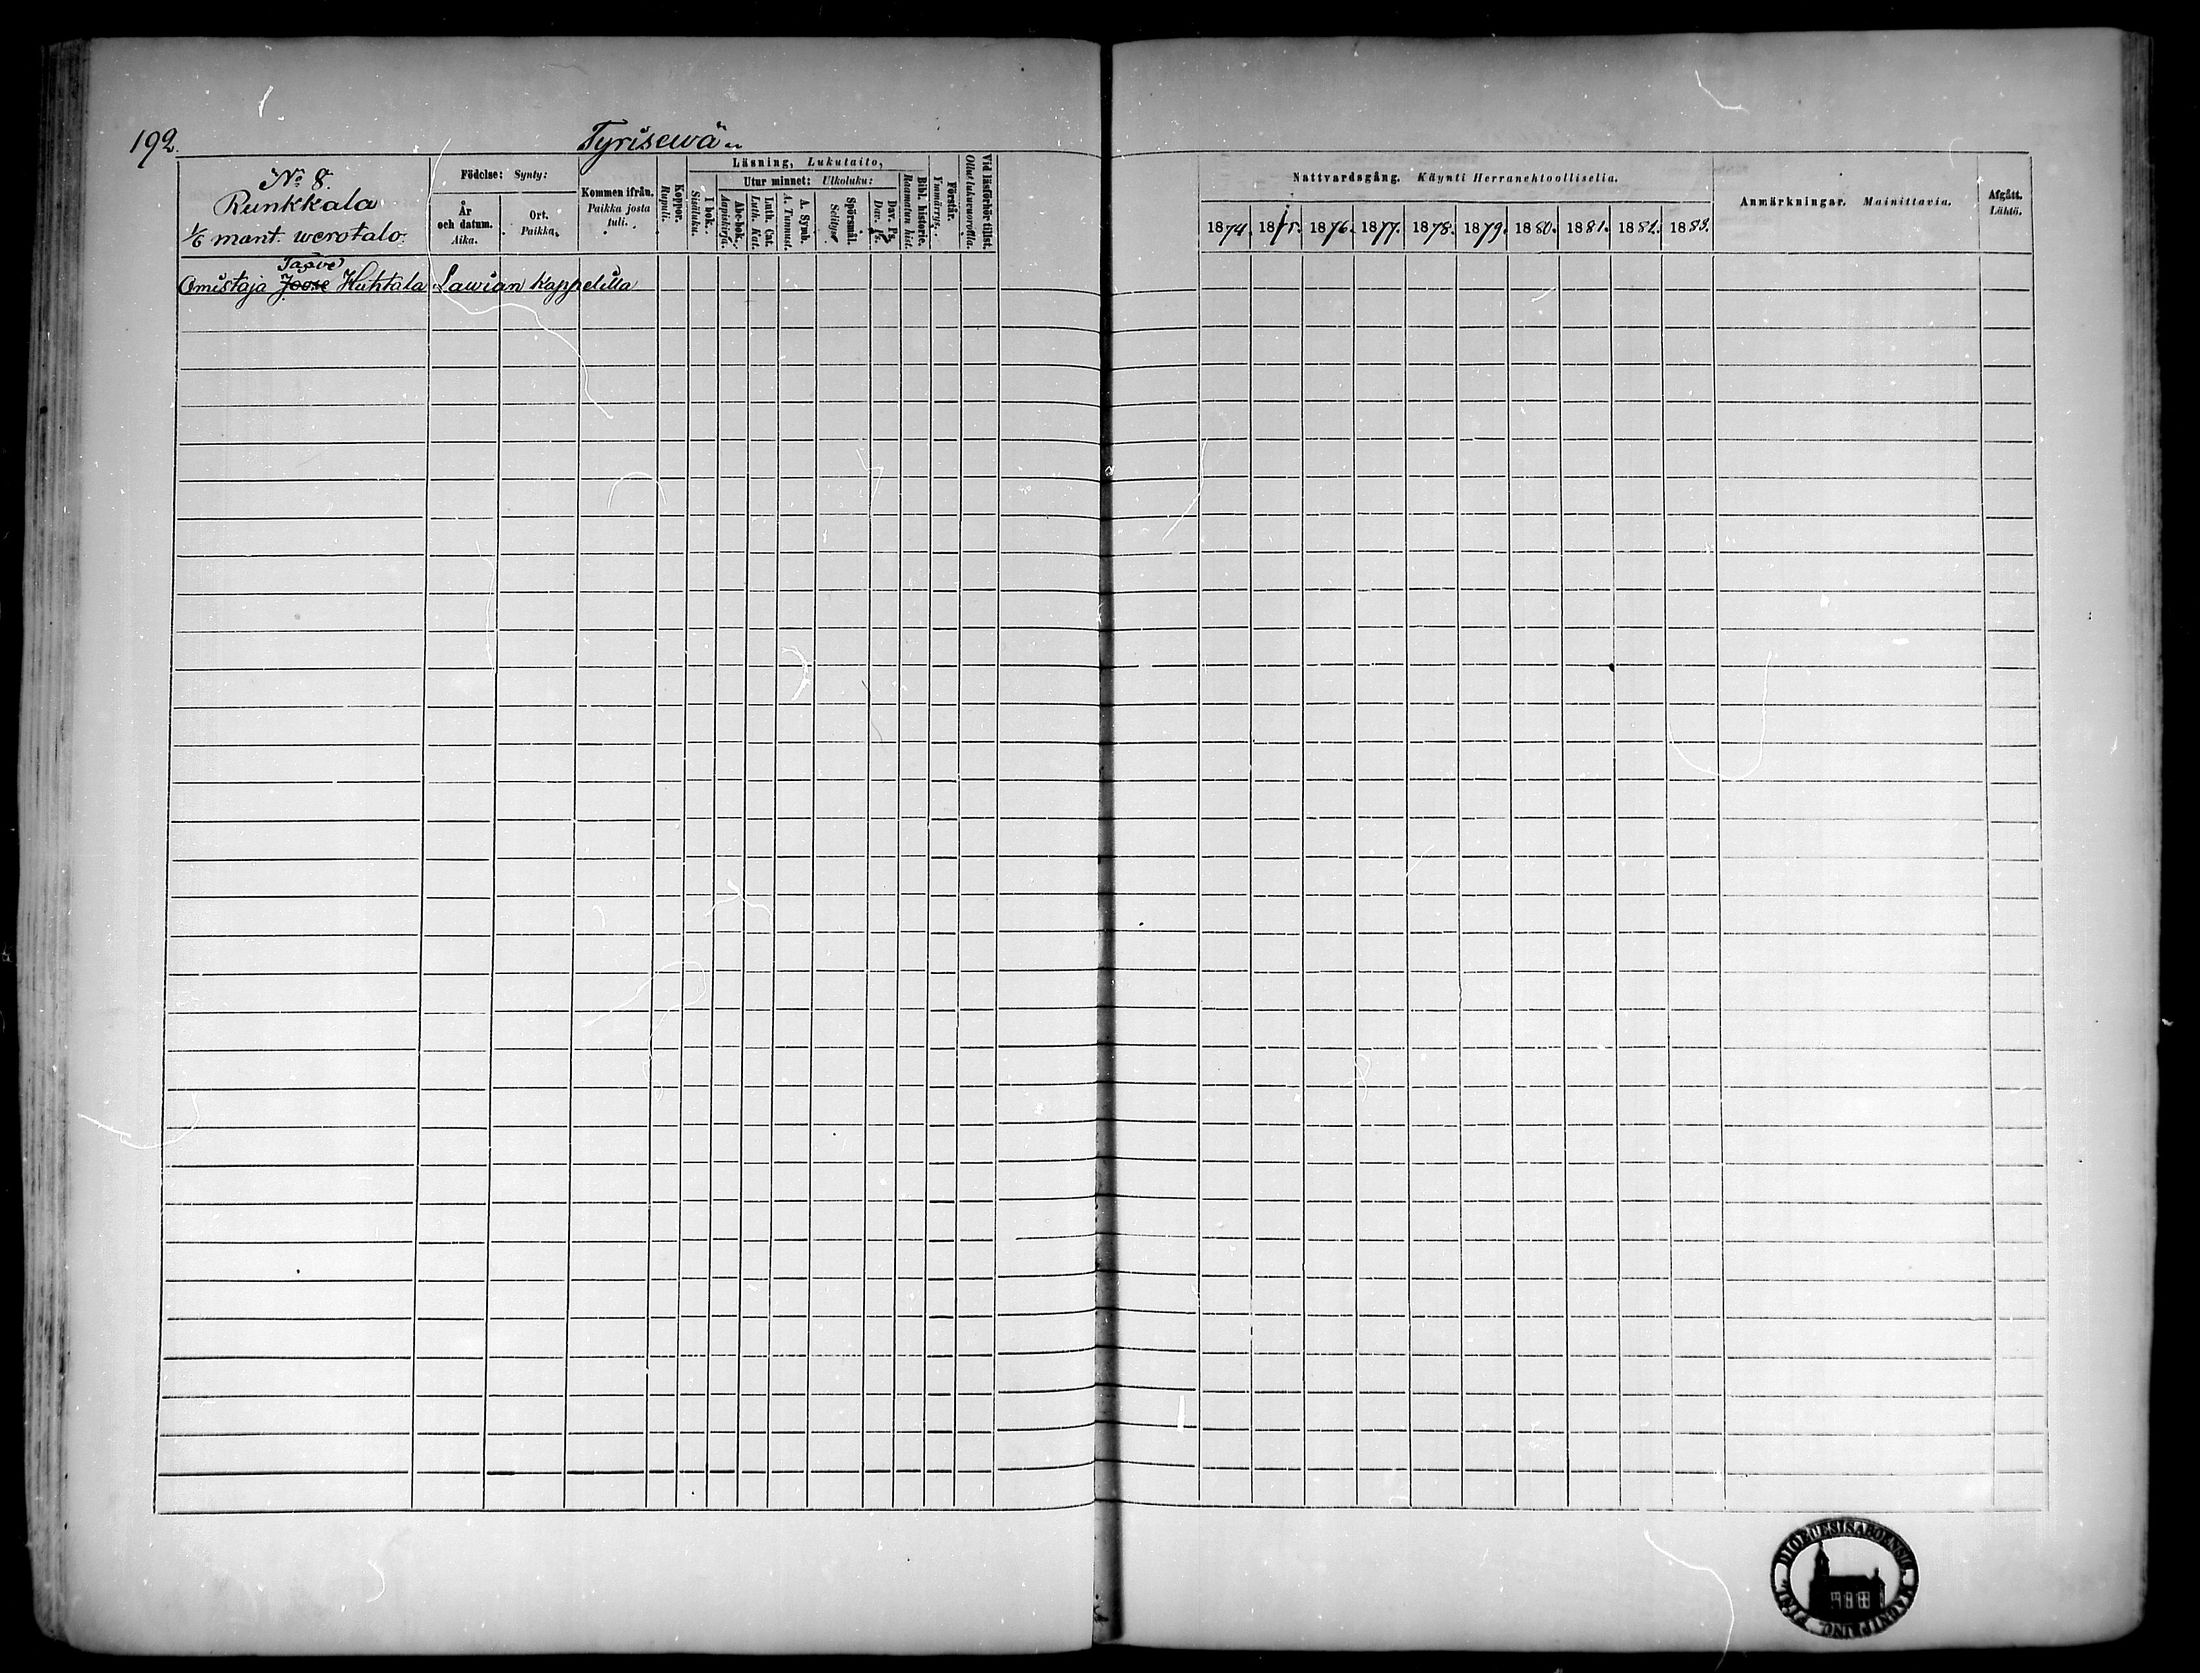 192.
Tyrisewä
Nº 8.
Runkkala
1/6 mant. werotalo.
Födelse: Synty:
År och datum. Aika.
Ort. Paikka.
Kommen ifrån. Paikka josta tuli.
Koppor. Rupuli.
Läsning, Lukutaito,
I bok. Sisäluku.
Utur minnet: Ulkoluku:
Abc-bok. Aapiskirja.
Luth. Cat. Luth. Kat.
A. Symb. A. Tunnust.
Spörsmål. Selitys
Dav. Ps. Dav. Ps.
Bibl. historie. Raamatun hist.
Förstår. Ymmärrys.
Vid läsförhör tillst. Ollut lukuvuorolla.
Nattvardsgång. Käynti Herranehtoolliselia.
1874. 1875. 1876. 1877. 1878. 1879. 1880. 1881. 1882. 1883.
Anmärkningar. Mainittavia.
Afgått. Lähtö.
Taave
Omistaja Joose Huhtala Lawian Kappelilla
SIGILL. DIOECESIS ABOENSIS MAGNI PRINC. FINL.